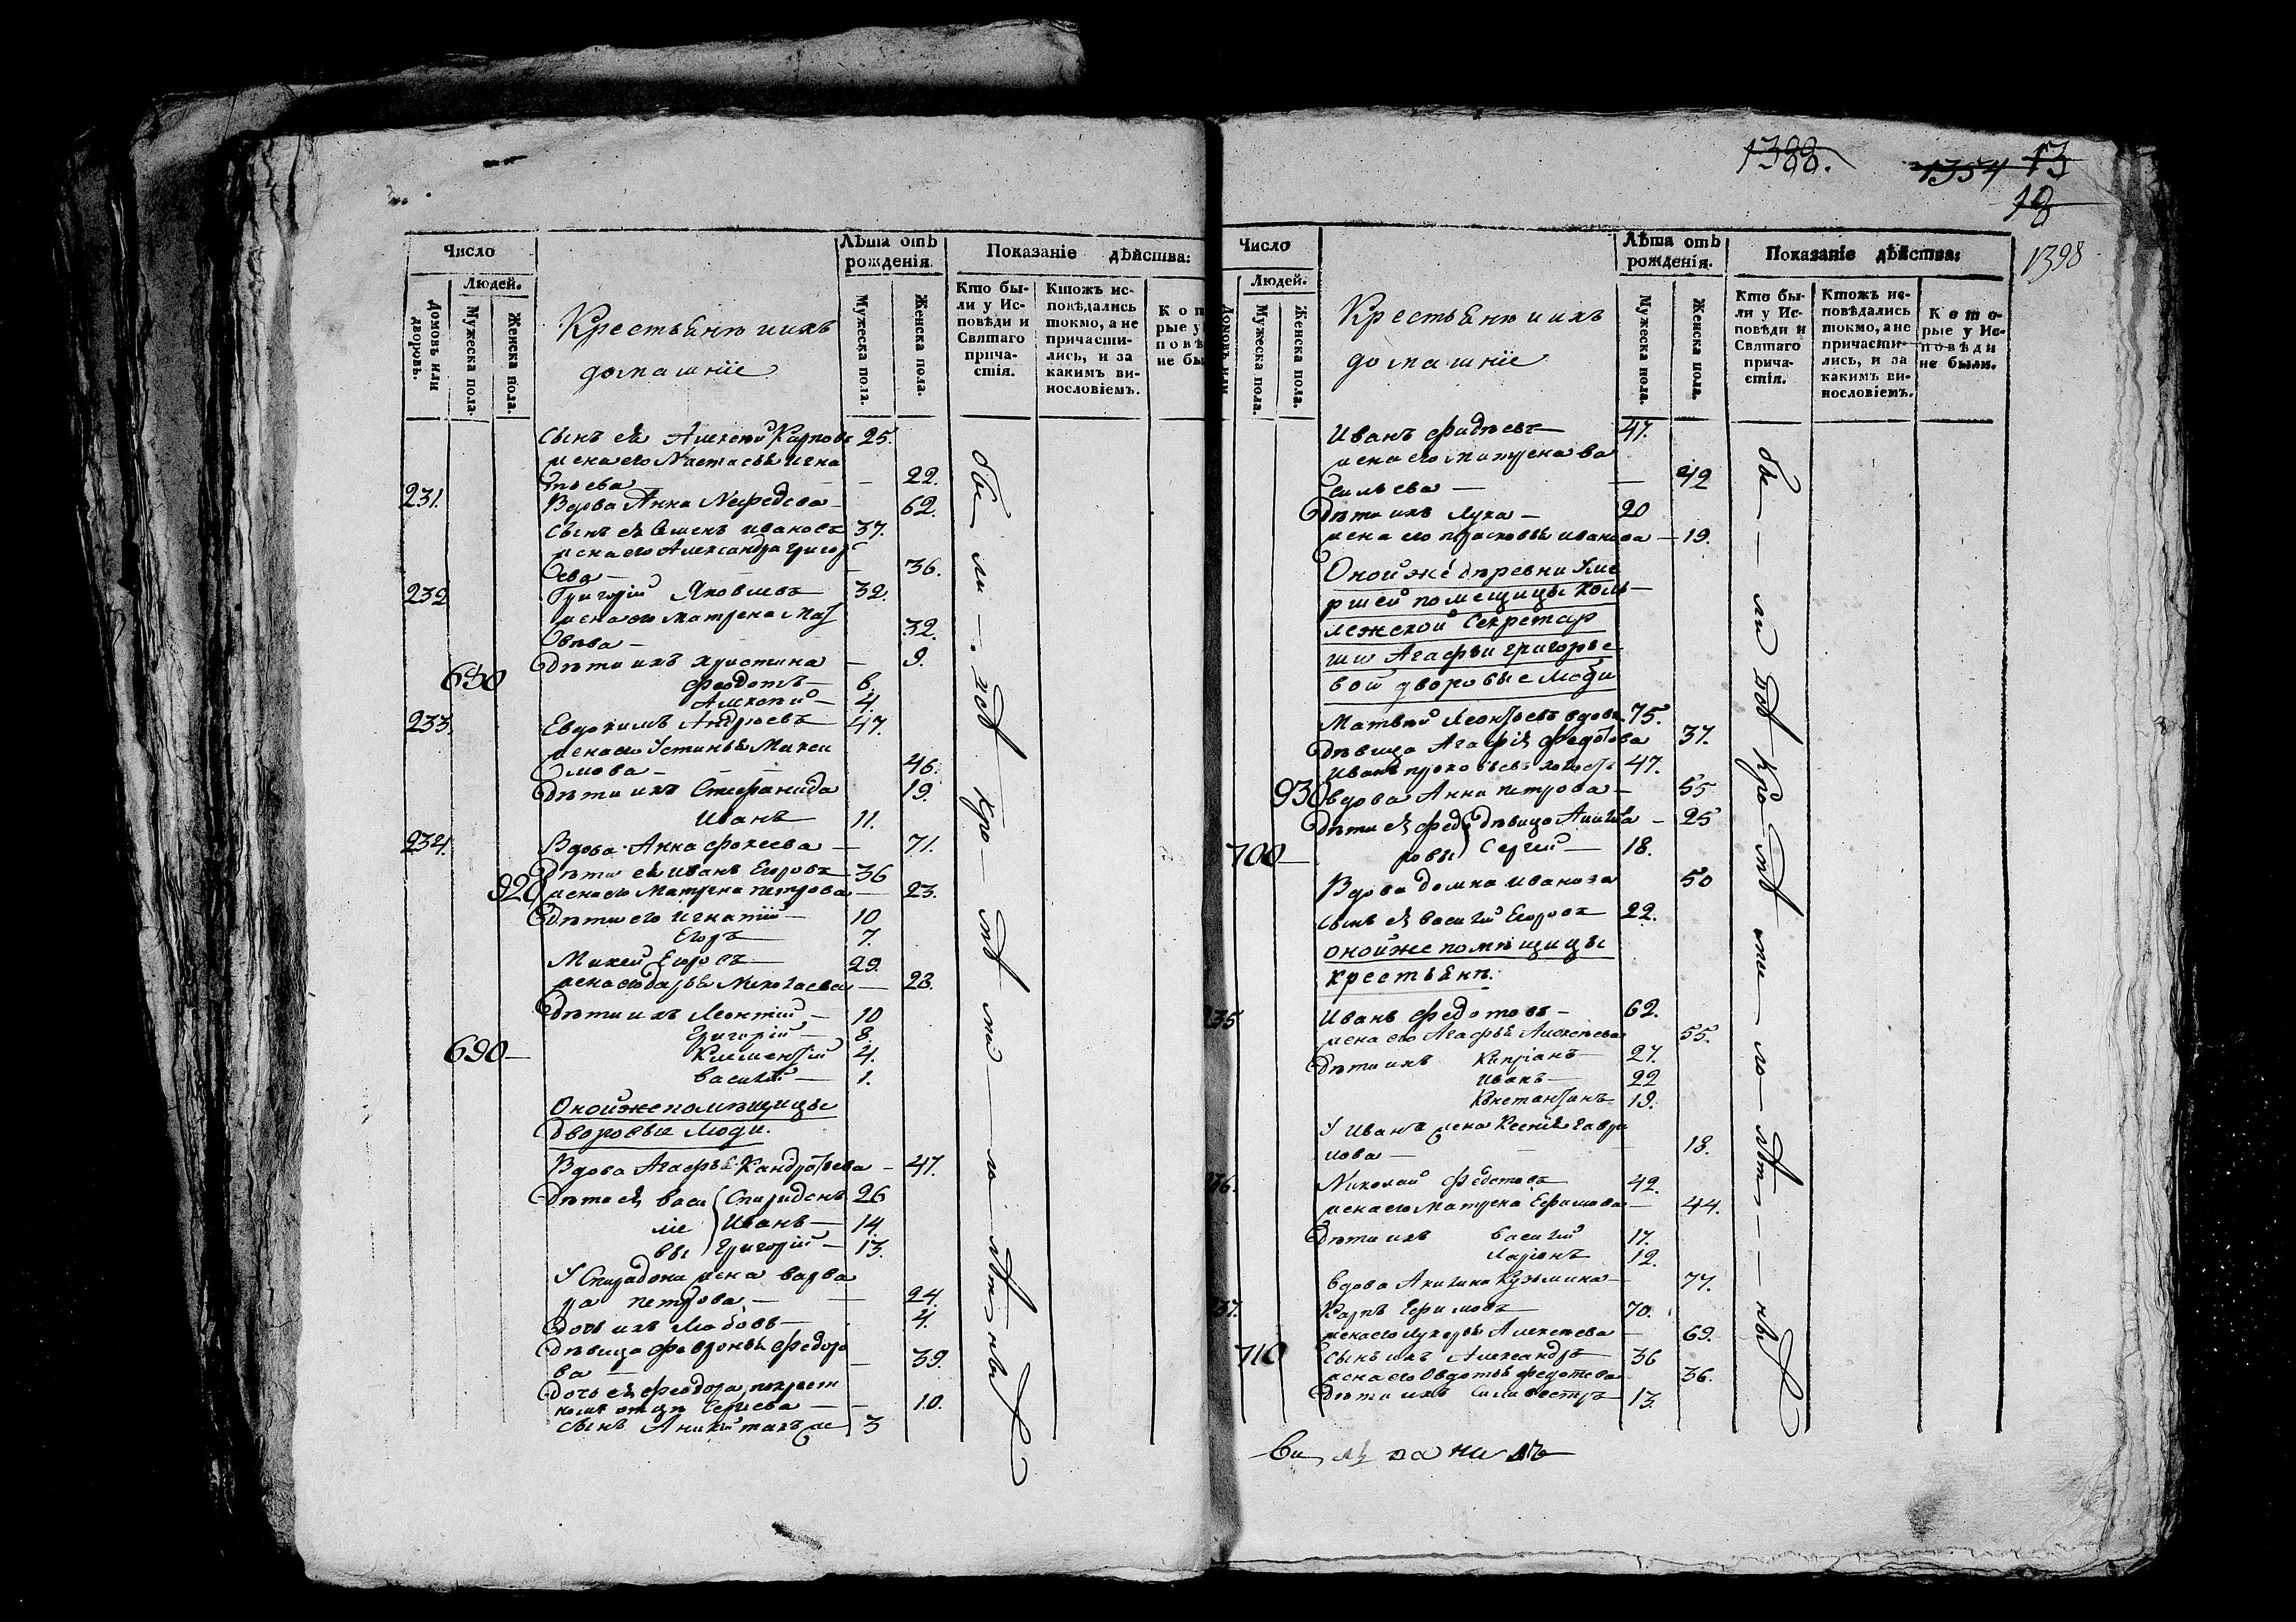 Число
Людей.
Домовъ или дворовъ.
Мужеска пола.
Женска пола.
Крестьянѣ и ихъ
домашніе
Лѣта отъ рожденія.
Мужеска пола.
Женска пола.
Показаніе дѣйства:
Кто бы-
ли у Ис-
повѣди и
Святаго
прича-
стія.
Ктожъ ис-
повѣдались
токмо, а не
причасти-
лись, и за
какимъ ви-
нословіемъ.
сынъ ея Алексей Карповъ 25.
жена его Настасья Игна
тьева — 22.
231. Вдова Анна Нефедова — 62.
сынъ ея Семенъ Ивановъ 37.
жена его Александра Григор
ева — 36.
232 Григорій Яковлевъ 32.
жена его Матрена Мат
вѣва — 32.
дѣти их Христина — 9.
680 Феодотъ — 6.
Алексей — 4.
233. Евдокимъ Андреевъ 47.
жена его Устинья Макси
мова — 46.
дѣти ихъ Стефанида 19.
Иванъ 11.
234. Вдова Анна Фокеева — 71.
дѣти ея Иванъ Егоровъ 36
920 жена его Матрена Петрова — 23.
дѣти его Игнатій — 10
Егоръ 7.
Михей Егоровъ 29.
жена его Дарья Николаева — 28.
дѣти ихъ Леонтій — 10
Григорій — 8.
690 — Климентій 4.
Василій — 1.
Оной же помѣщицы
дворовые люди.
Вдова Агафья Кандратьева — 47.
дѣти ея Васи Спиридонъ 26
лье Иванъ — 14.
вы Григорій — 13.
У Спиридона жена Варва
ра Петрова — 24.
дочь ихъ Любовь — 4.
дѣвица Февронья Федоро
ва — 39.
дочь ея Феодора, по крест
номъ отцѣ Сергеева — 10.
сынъ Аникій такъ же 3
бы — ли — зов кро — мѣ ма — ло — лѣт — ны х
1388.
1354 13
18
1398
Число
Людей.
Домовъ или
Мужеска пола.
Женска пола.
Крестьянѣ и ихъ
домашніе
Лѣта отъ рожденія.
Мужеска пола.
Женска пола.
Показаніе дѣйства:
Кто бы-
ли у Ис-
повѣди и
Святаго
прича-
стія.
Ктожъ ис-
повѣдались
токмо, а не
причасти-
лись, и за
какимъ ви-
нословіемъ.
Кото-
рые у Ис-
повѣди
не были.
Иванъ Фадѣевъ 47.
жена его Матрена Ва
сильева — 42
дѣти ихъ Лука — 20
жена его Прасковья Иванова — 19.
Оной же деревни уме
ршей помещицы коль
лежской секретар
ши Агафьи Григорье
вой дворовые люди
Матвей Леонтьевъ вдовъ 75.
дѣвица Агафія Федотова 37.
Иванъ Прокофьевъ холостъ 47.
930 вдова Анна Петрова — 55
дѣти ея Федо дѣвица Акилина — 25
700 — ровы Сергей — 18.
Вдова Домна Иванова 50
сынъ ея Василій Егоровъ 22.
оной же помѣщицы
крестьянѣ.
235 Иванъ Федотовъ — 62.
жена его Агафья Алексеева 55.
дѣти ихъ Кипріанъ — 27.
Иванъ — 22
Константинъ 19.
У Ивана жена Ксенія Гаври
лова — 18.
236. Николай Федотовъ 42.
жена его Матрена Ефимова — 44.
дѣти ихъ Василій 17.
Ларіонъ 12.
вдова Акилина Кузьмина — 77.
237. Карпъ Ефимовъ 70.
жена его Лукерья Алексеева — 69.
710 сынъ ихъ Александръ 36
жена его Овдотья Федотова 36.
дѣти ихъ Силивестръ 13.
бы — ли зов кро — мѣ ма — ло — лѣт — ны х